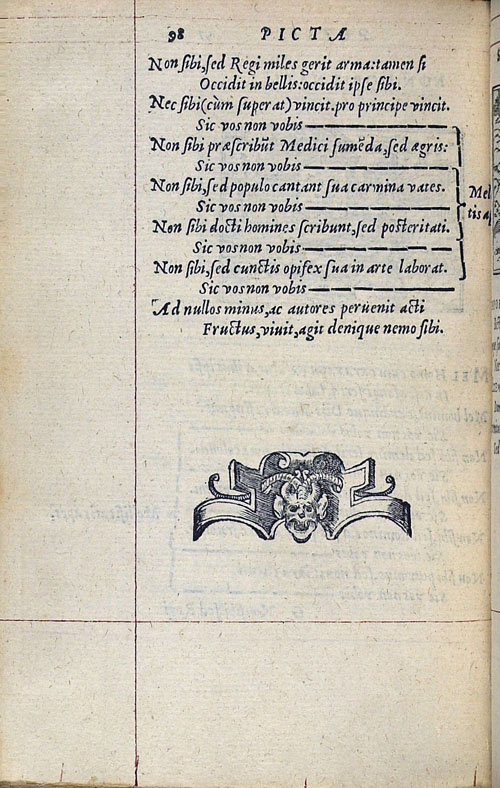 98 PICTA
Non sibi, sed Regi miles gerit arma: tamen si
Occidit in bellis: occidit ipse sibi.
Nec sibi (cùm superat) vincit. pro principe vincit.
Sic vos non vobis
Non sibi præscribūt Medici sumēda, sed ægris:
Sic vos non vobis
Non sibi, sed populo cantant sua carmina vates.
Sic vos non vobis
Mel
tis a
Non sibi docti homines scribunt, sed posteritati.
Sic vos non vobis
Non sibi, sed cunctis opifex sua in arte laborat.
Sic vos non vobis
Ad nullos minus, ac autores peruenit acti
Fructus, viuit, agit denique nemo sibi.